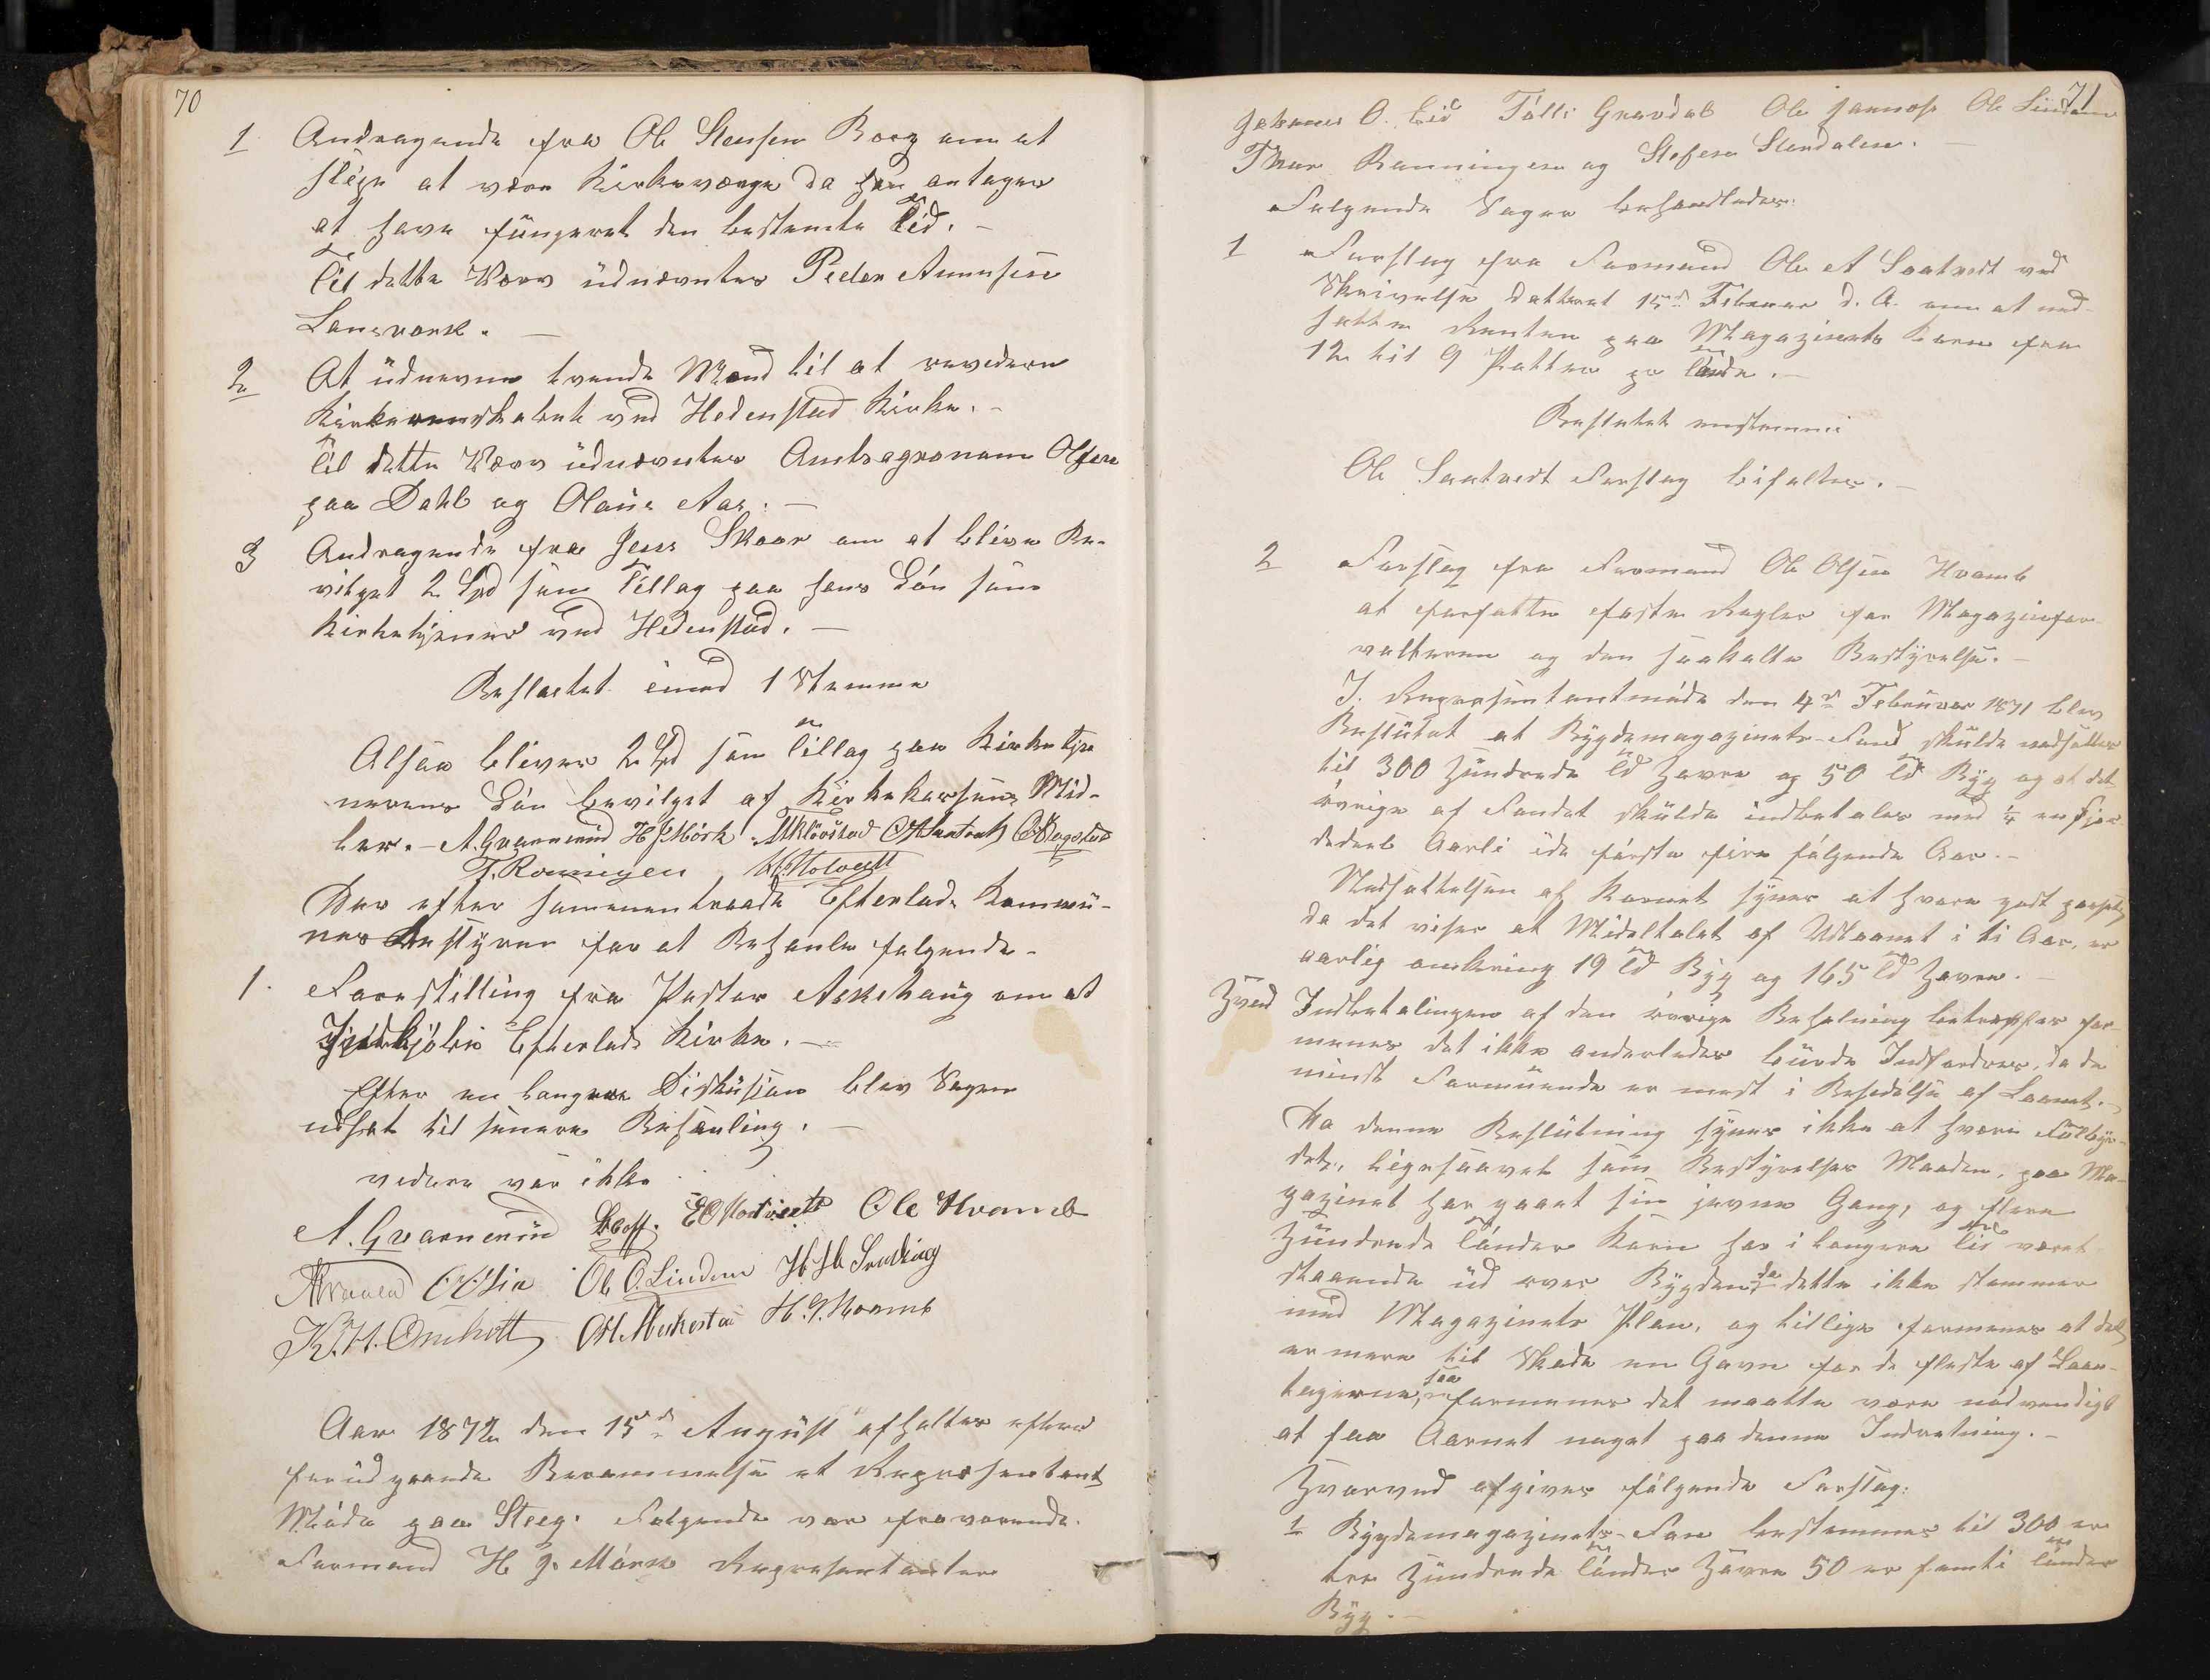 70
1 Andragende fra Ole Steensen Borg om at
slippe at være Kirkeværge da han antager
at have fungeret den bestemte Tid. –
Til dette Værv udnævntes Peder Amunsen
Lansværk. –
2 At udnevne tvende Mænd til at revedere
Kirkerenskabet ved Hedenstad Kirke. –
Til dette Værv udnævntes Amtsagronom Olsen
paa Dahl og Olaus Aas. –
3 Andragende fra Jens Skoar om at blive Be-
vilget 2 Spd som Tillag paa hans Lön som
Kirketjener ved Hedenstad. –
Besluttet imod 1 Stemme
Altsaa bliver 2 Spd som Tillag paa Kirketje
nerens Lön bevilget af Kirkekassens Mid-
ler. – A. Gvarnerud H J Mörk
T. Roningen
Der efter sammentraadte Efterlads Kommu-
nes Bestyrer for at Behanle følgende –
1. Forestilling fra Pastor Askehaug om at
Efterlads Kirke. –
Efter en langere Diskusjon blev Sagen
udsat til senere Behanling. –
videre var ikke
A. Gvarnerud Ole Hvamb
Ole O. Lindem
H. J. Hvamb
Aar 1872 den 15de August afholtes efter
forudgaaende Berammelse et Represantant
Möde paa Steeg. Følgende var fraværende.
Formand H J. Mörk Represantanter
71
Johanes O. Lid Tolli Gravdal Ole Jamnos Ole Lindem
Thor Ranningen og Stefen Stendalen.
Følgende Sager behandledes:
1 Forslag fra Formand Ole A Saatvedt ved
Skrivelse datteret 15de Februar d. A. om at ned-
sette Renten paa Magazinets Korn fra
12 til 9 Potter pr Tönde. –
Besluttet enstemmi
Ole Saatvedt Forslag bifaltes. –
2 Forslag fra Formand Ole Olsen Hvamb
at forfatte faste Regler for Magazinfor-
valteren og den saakalte Bestyrelse. –
I. Represantantmöde den 4de Februar 1871 blev
Beslutet at Bygdemagazinets-Fond skulde nedsættes
til 300 hundrede Td havre og 50 Td Byg og at det
övrige af Fondet skulde indbetales med ¼ en Fjer-
dedeel Aarli i de förste fire fölgende Aar. –
Nedsættelsen af Kornet synes at hvære godt passeli
da det viser at Mideltalet af Udlaanet i ti Aar, er
aarlig omkring 19 Td Byg og 165 Td havre. –
Hvad Indbetalingen af den övrige Beholning betræffer for-
menes det ikke anderledes burde Indfordres, da de
minst Formuende er mest i Besidelse af Laanet. –
Da denne Beslutning synes ikke at hvære Fulbyr-
det, ligesaavel som Bestyrelses Maaden, paa Ma-
gazinet har gaaet sin jevne Gang, og flere
hundrede Tönder Korn har i langere Tid været
staaende ud over Bygden, da dette ikke stemmer
med Magazinets Plan, og tillige formenes at det
er mere til Skade en Gavn for de fleste af Laan-
tagerne, saa formenes det maatte være nödvendigt
at faa Aarnet noget paa denne Indretning. –
Hvorved afgives fölgende Forslag:
1 Bygdemagazinets-Fon bestemmes til 300 er
tre hundrede Tönder havre 50 er femti Tönder
Byg. –